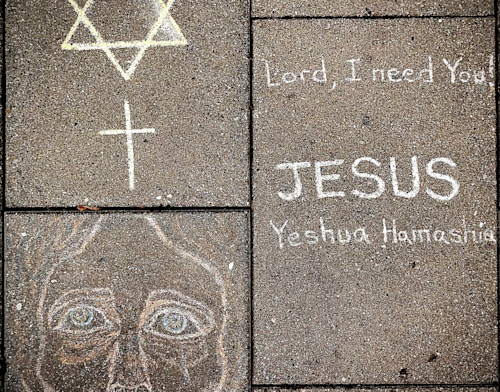 Lord, I need You!
JESUS
Yeshua Hamashia